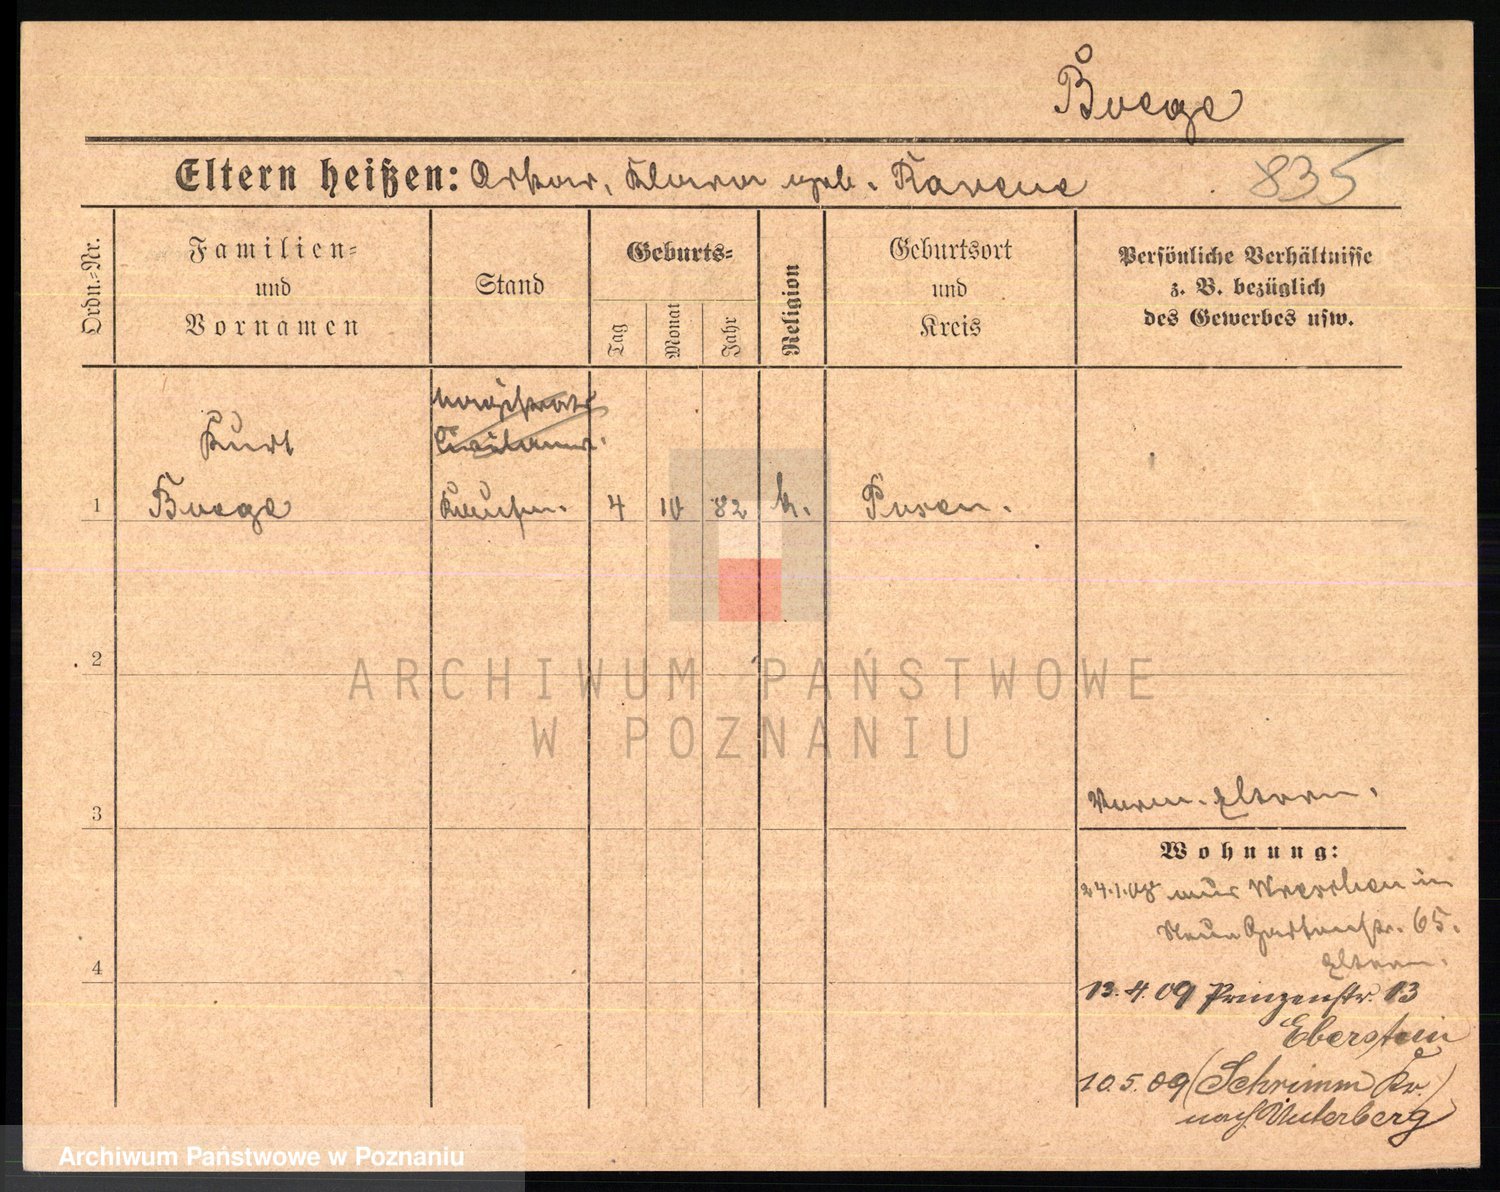 Buege
Eltern heißen: Oskar, Klara geb. Ravene
835
Ordn.-Nr.
Familien-
und
Vornamen
Stand
Geburts-
Tag
Monat
Jahr
Religion
Geburtsort
und
Kreis
Persönliche Verhältnisse
z. B. bezüglich
des Gewerbes usw.
Magistrats
Kurt
1 Buege Kaufm. 4 10 82 k. Posen.
2
ARCHIWUM PAŃSTWOWE
W POZNANIU
3
Verm. Eltern.
Wohnung:
24.1.08 aus Wreschen in
Neue Gartenstr. 65.
Eltern.
4
13.4.09 Prinzenstr. 13
Eberstein
10.5.09 (Schrimm Kr.)
nach Unterberg
Archiwum Państwowe w Poznaniu